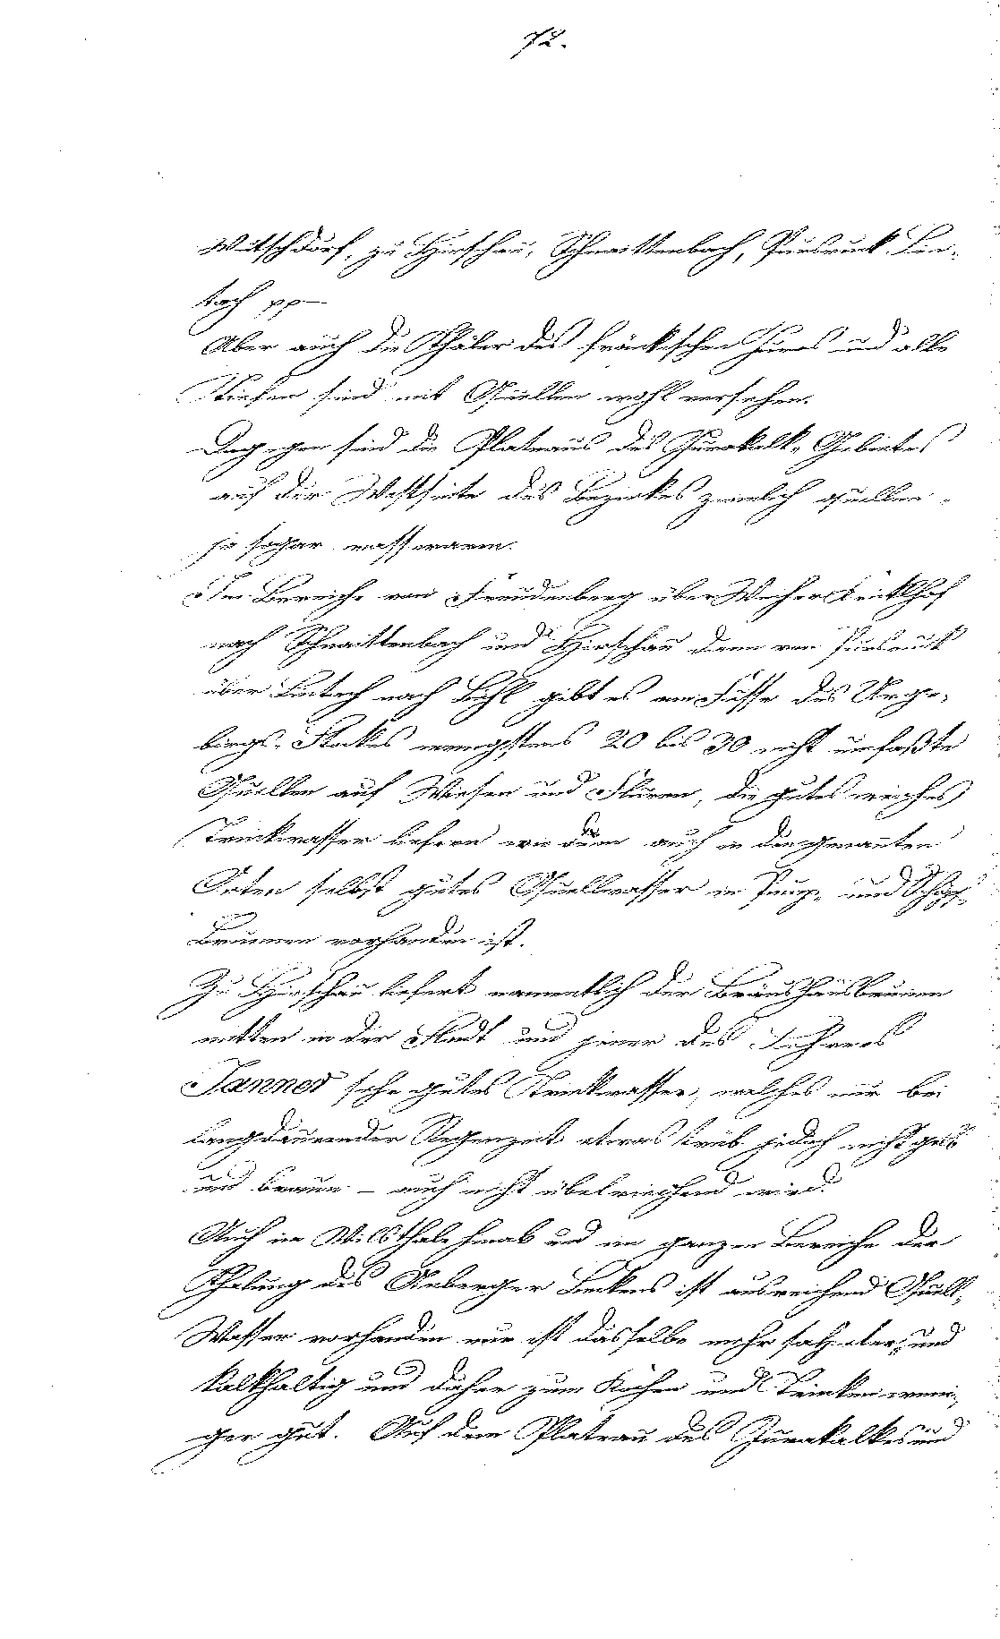 72.
Witschdorf, zu Hirschau, Schnaittenbach, Pursruck Lin-
tach pp
Aber auch die Thäler des fränkischen Jura's und alle
Tiefen sind mit Quellen wohl versehen.
Dagegen sind die Plateaus des Jurakalk-Gebietes
auf der Westseite des Bezirkes ziemlich quellen-
ja sogar wasserarm.
Im Bereiche von Freudenberg über Weiher
nach Schnaittenbach und Hirschau dann von Pursruck
über Lintach nach Bühl gibt es am Fusse des Urge-
birgs-Stockes wenigstens 20 bis 30 nicht umfaßte
Quellen auf Wiesen und Fluren, die gutes weiches
Trinkwasser liefern wie denn auch in den genannten
Orten selbst gutes Quellwasser in Pump- und Schöpf-
Brunnen vorhanden ist.
Zu Hirschau liefert namentlich der Bräuhausbrunnen
mitten in der Stadt und jener des
Janner sehr gutes Trinkwasser, welches nur bei
langdauernder Regenzeit etwas trüb jedoch nicht gelb
und braun – auch nicht übelriechend wird.
Auch im Vilsthale herab und im ganzen Bereiche der
Thalung des Amberger Beckens ist ausreichend Quell-
Wasser vorhanden nur ist dasselbe mehr und
kalkhaltig und daher zum Kochen und Trinken weni-
ger gut. Auf dem Plateau des Jurakalkes und